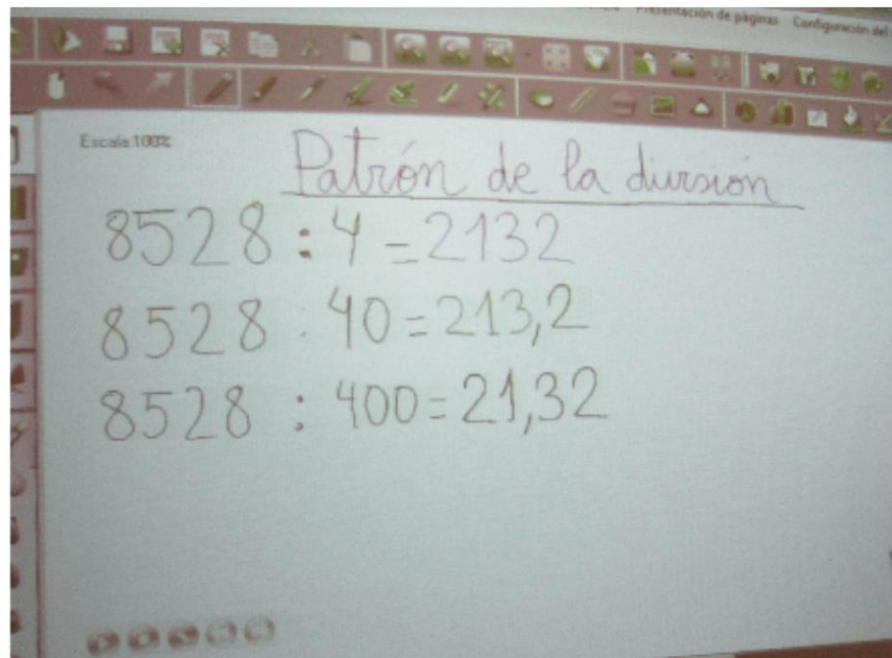 Presentación de páginas Configuración del
Escala:100%
Patrón de la división
8528 : 4 = 2132
8528 : 40 = 213,2
8528 : 400 = 21,32